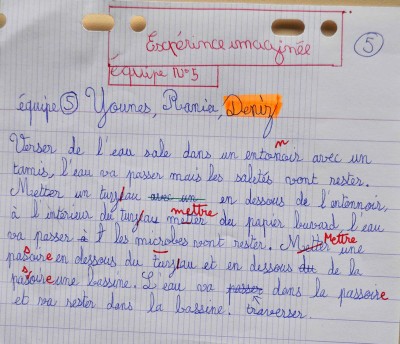 Expérince imaginée
5
équipe N°5
équipe 5 Younes, Rania, Deniz
Verser de l'eau sale dans un entonoir avec un
n
tamis, l'eau va passer mais les saletés vont rester.
Metter un tuyau avec un en dessous de l'entonnoir,
à l'intérieur du tuyau metter du papier buvard l'eau
mettre
va passer à les microbes vont rester. Metter une
Mettre
pasoire en dessous du tuyau et en dessous du de la
s
pasoire une bassine. L'eau va passer dans la passoire
s
et va rester dans la bassine. traverser.